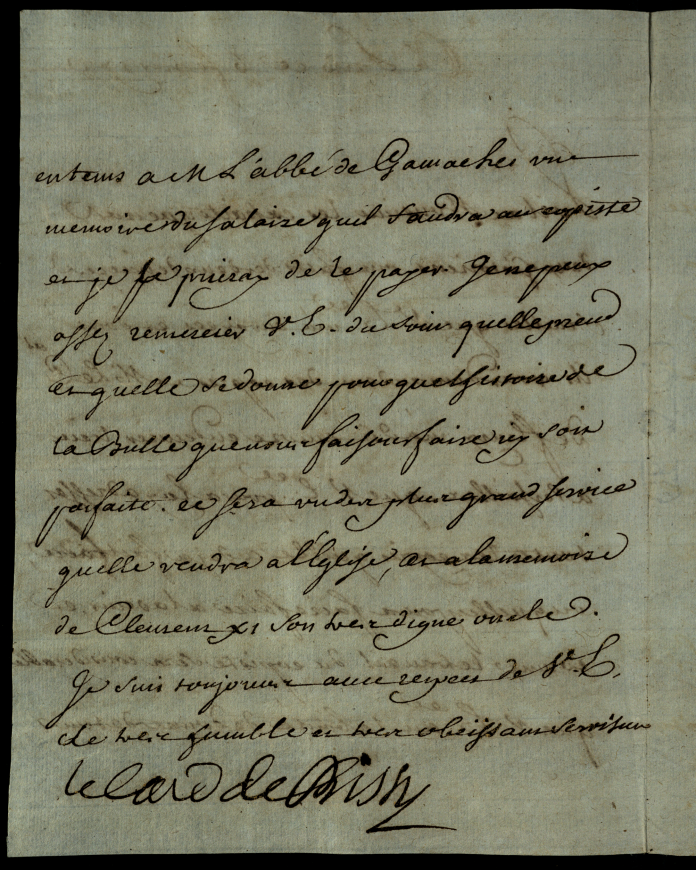 en tems a M L'abbé de Gamaches un
memoire du salaire quil faudra au copiste
et je le prieray de le payer. Je ne peux
assez remercier V. E. du soin quelle prend
et quelle se donne pour que l'histoire de
la Bulle que nous faisons faire icy soit
parfaite. ce sera un des plus grand service
quelle rendra a l'Eglise, et a la memoire
de Clement XI son tres digne oncle.
Je suis toujours avec respect de V. E.
le tres humble et tres obeissant serviteur
le Card de Bissy